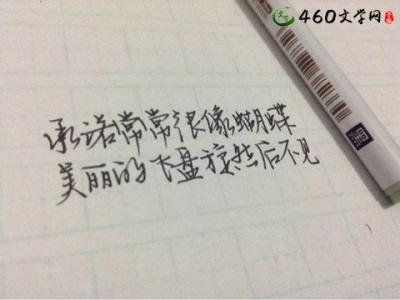 460文学网
承诺常常很像蝴蝶
美丽的飞盘旋然后不见